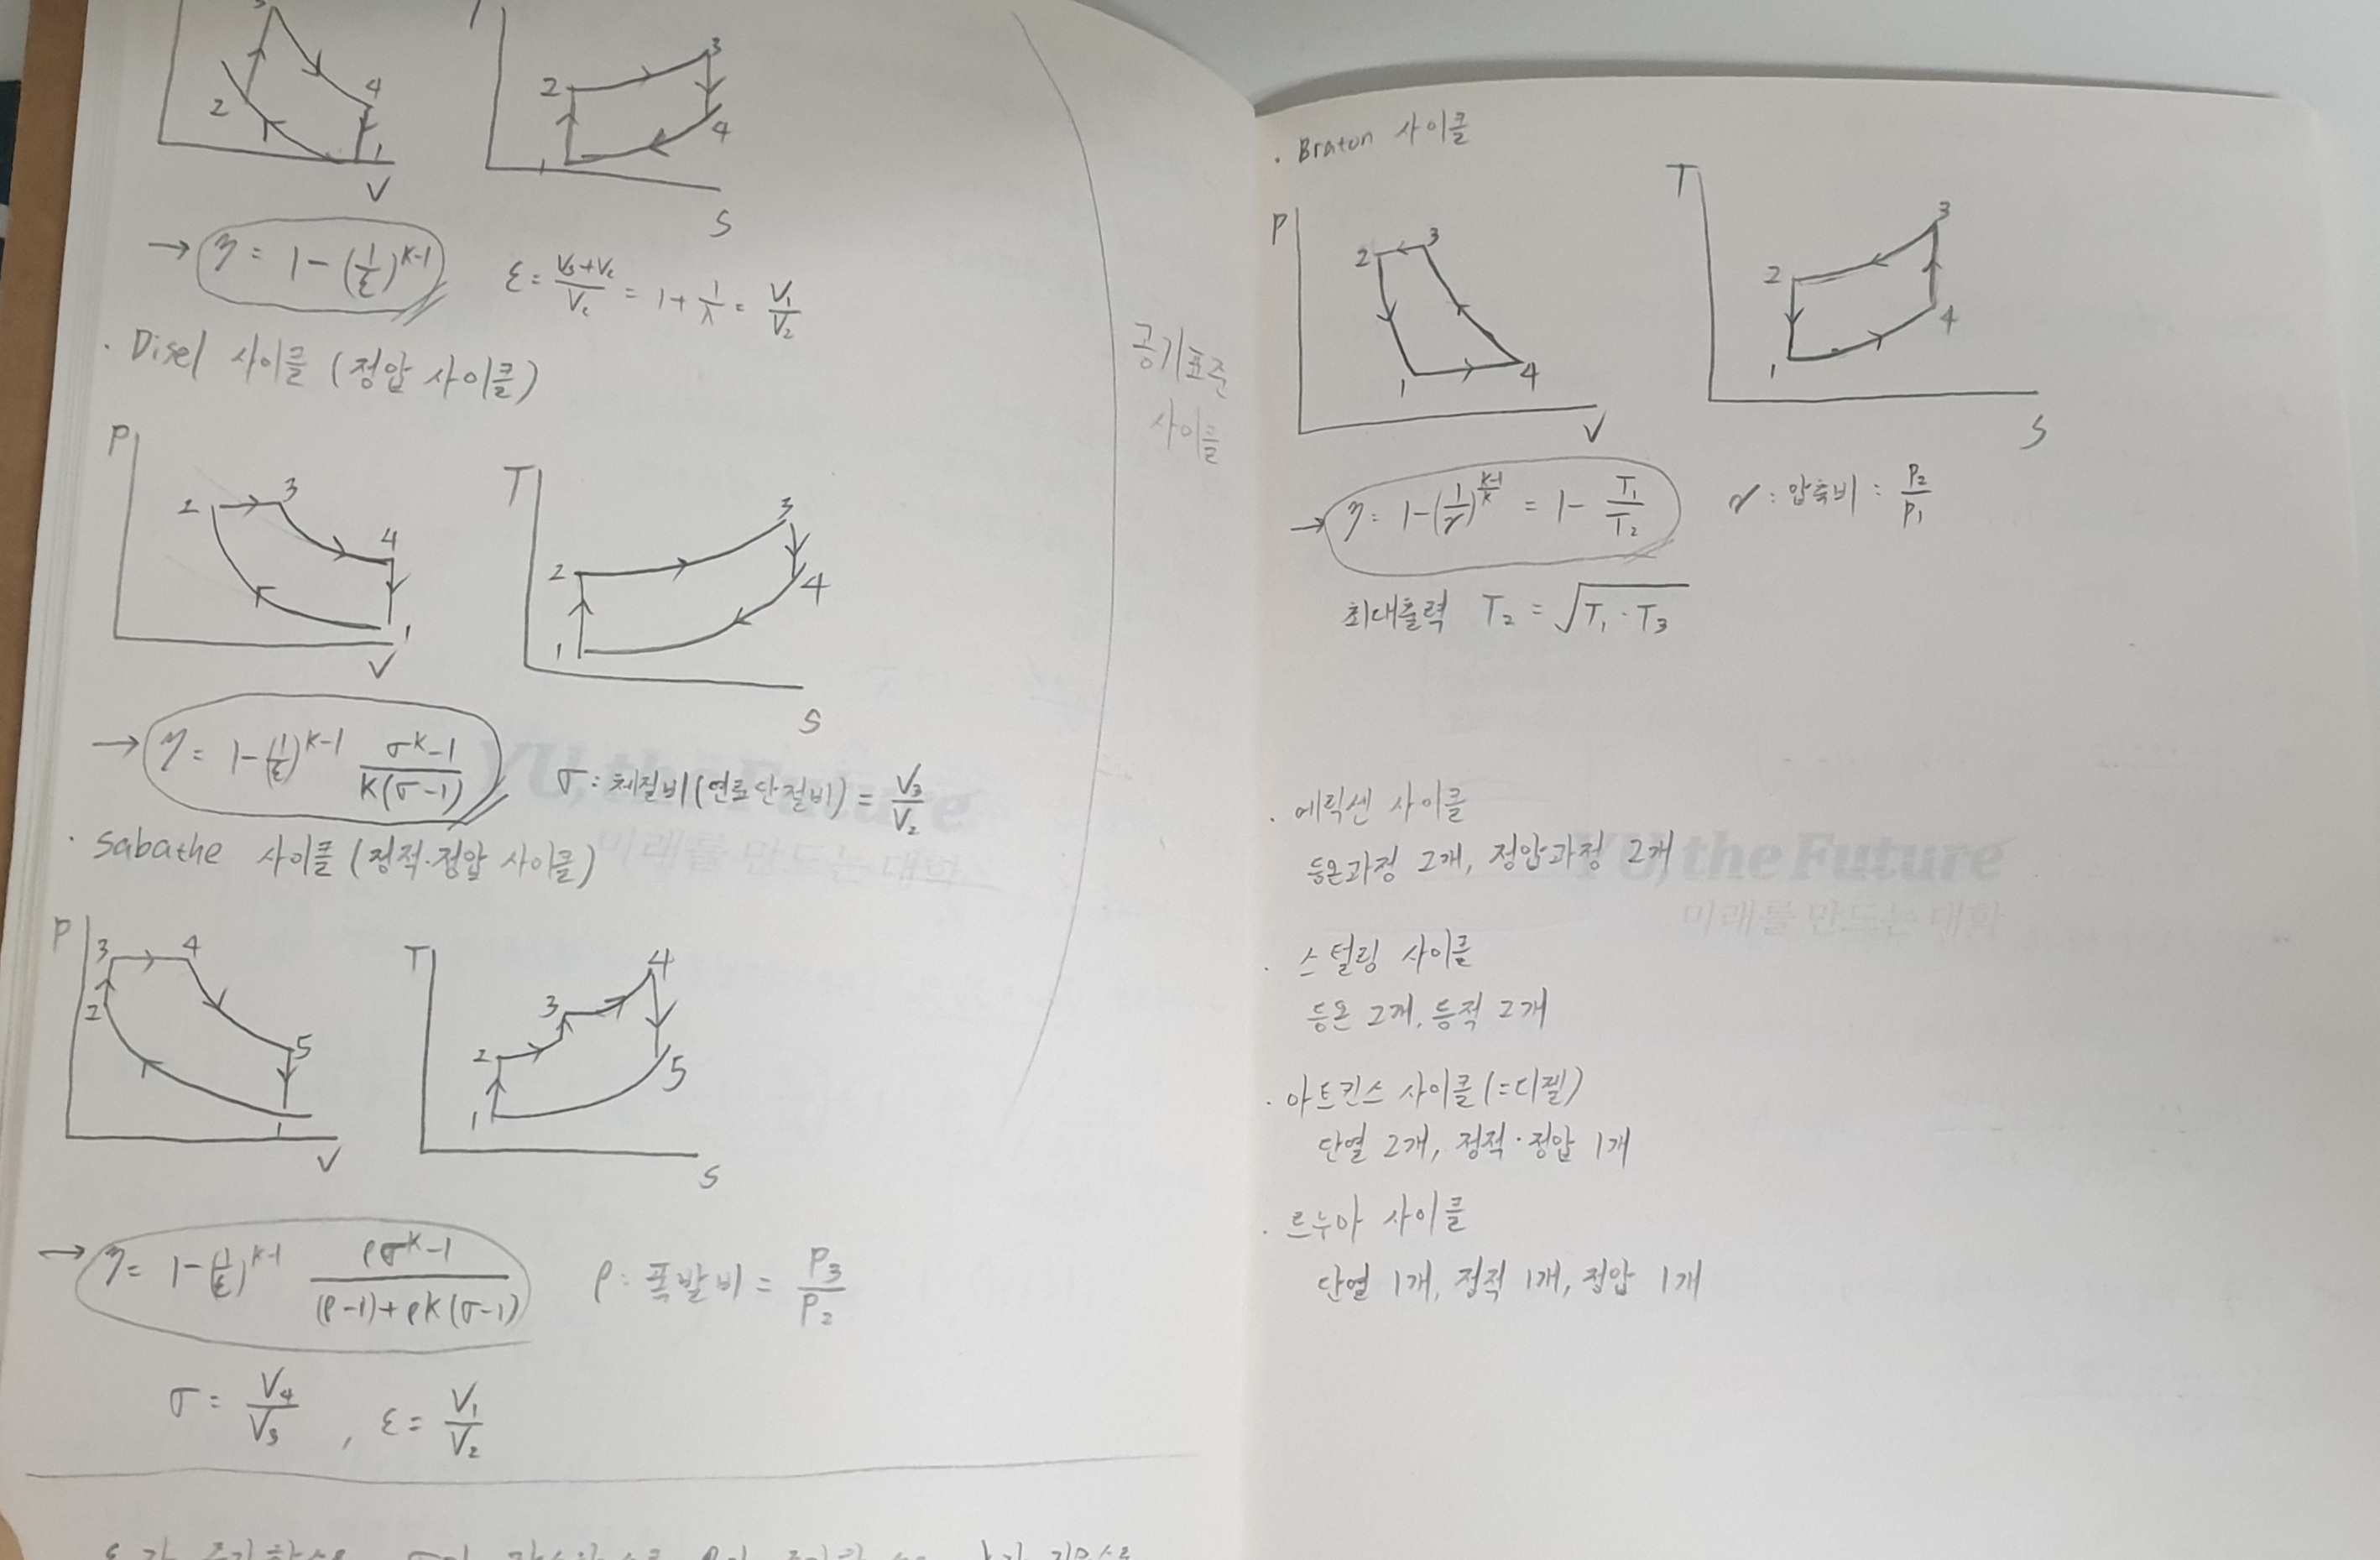 3
2
4
1
V
2
3
4
1
S
→ η = 1 - (1/ε)^(k-1)
ε = (Vs+Vc)/Vc = 1 + 1/λ = V1/V2
· Disel 사이클 (정압 사이클)
P
2
3
4
1
V
T
2
3
4
1
S
→ η = 1 - (1/ε)^(k-1) (σ^k - 1)/(k(σ-1))
σ : 체절비 (연료단절비) = V3/V2
· Sabathe 사이클 (정적·정압 사이클)
P
3
4
2
5
1
V
T
4
3
2
5
1
S
→ η = 1 - (1/ε)^(k-1) (ρσ^k - 1)/((ρ-1)+ρk(σ-1))
ρ : 폭발비 = P3/P2
σ = V4/V3 , ε = V1/V2
공기표준
사이클
· Braton 사이클
P
2
3
1
4
V
T
3
2
4
1
S
→ η = 1 - (1/γ)^((k-1)/k) = 1 - T1/T2
γ : 압축비 : P2/P1
최대출력 T2 = √(T1·T3)
· 에릭센 사이클
등온과정 2개, 정압과정 2개
· 스털링 사이클
등온 2개, 등적 2개
· 아트킨스 사이클 (=디젤)
단열 2개, 정적·정압 1개
· 르누아 사이클
단열 1개, 정적 1개, 정압 1개
YU, the Future
미래를 만드는 대학
YU, the Future
미래를 만드는 대학